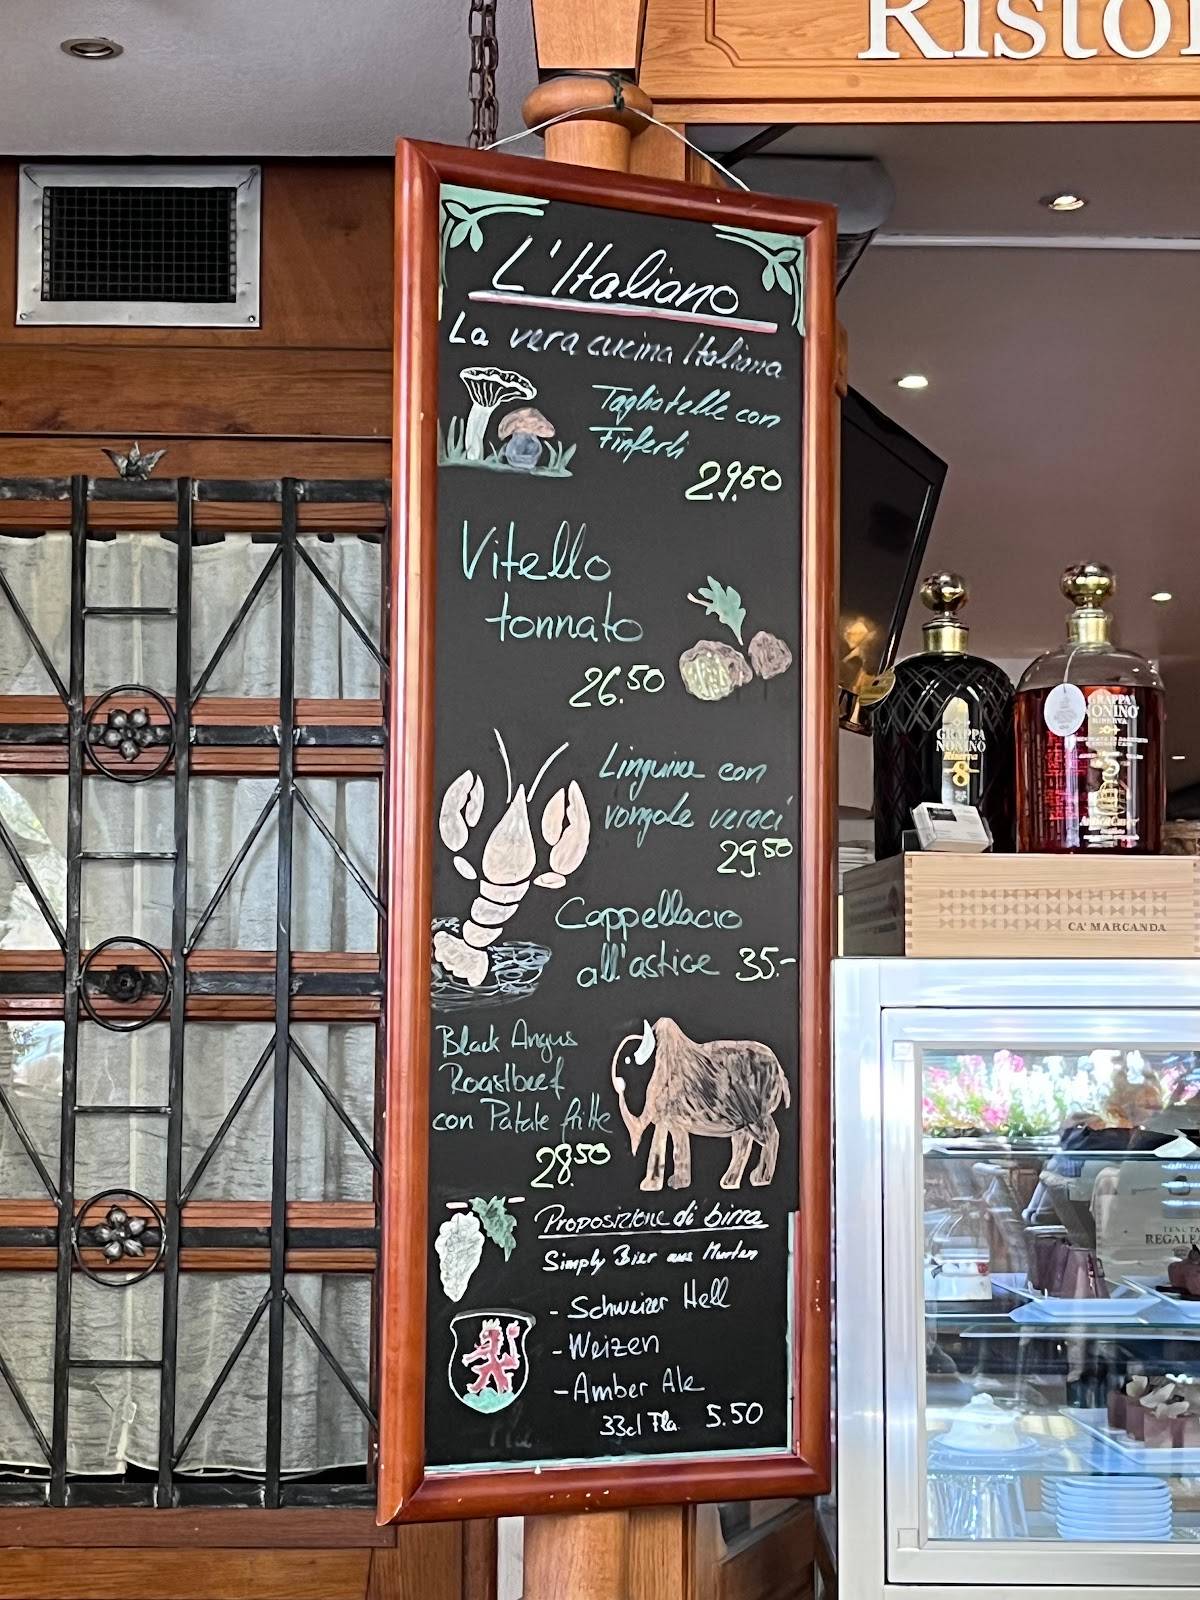 Ristor
L'Italiano
La vera cucina Italiana
Tagliatelle con
Finferli
29.50
Vitello
tonnato
26.50
Linguine con
vongole veraci
29.50
Cappellacio
all'astice 35.-
Black Angus
Roastbeef
con Patate fritte
28.50
Proposizione di birra
Simply Bier aus Murten
- Schweizer Hell
- Weizen
- Amber Ale
33cl Fla. 5.50
GRAPPA
NONINO
Riserva
8
GRAPPA
NONINO
RISERVA
AnticaCuvée
CA' MARCANDA
TENUTA
REGALE